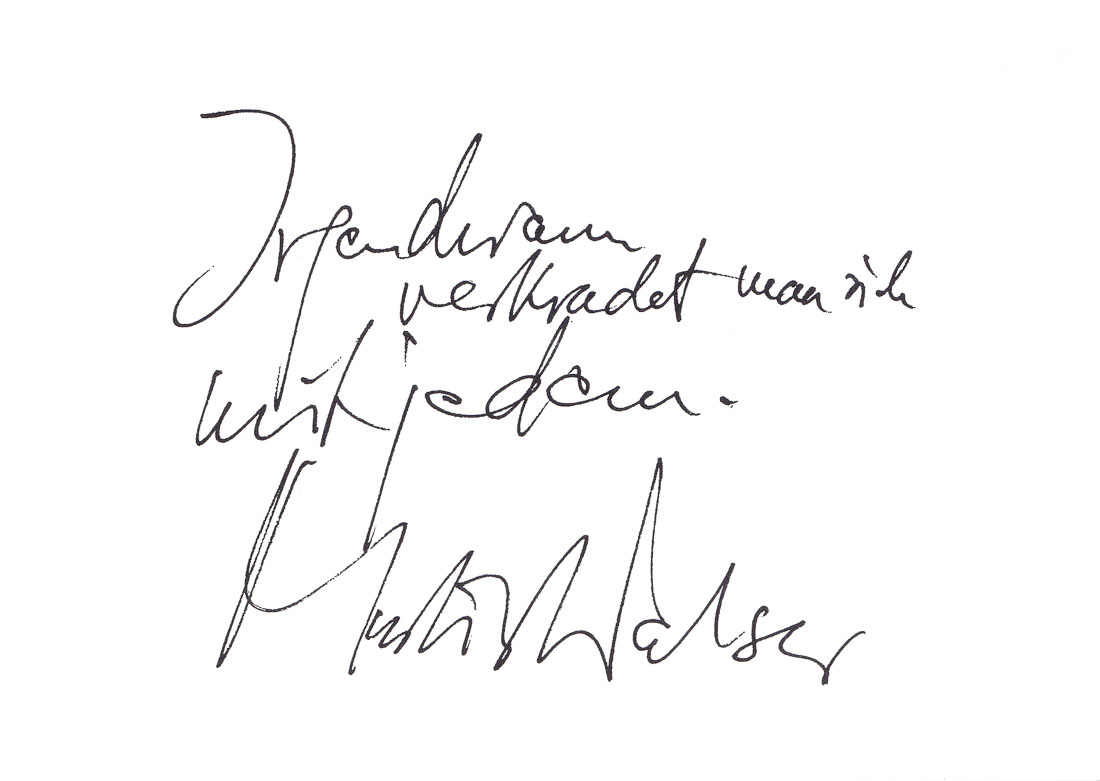 Irgendwann
verkradet man sich
mit jedem.
Martin Walser